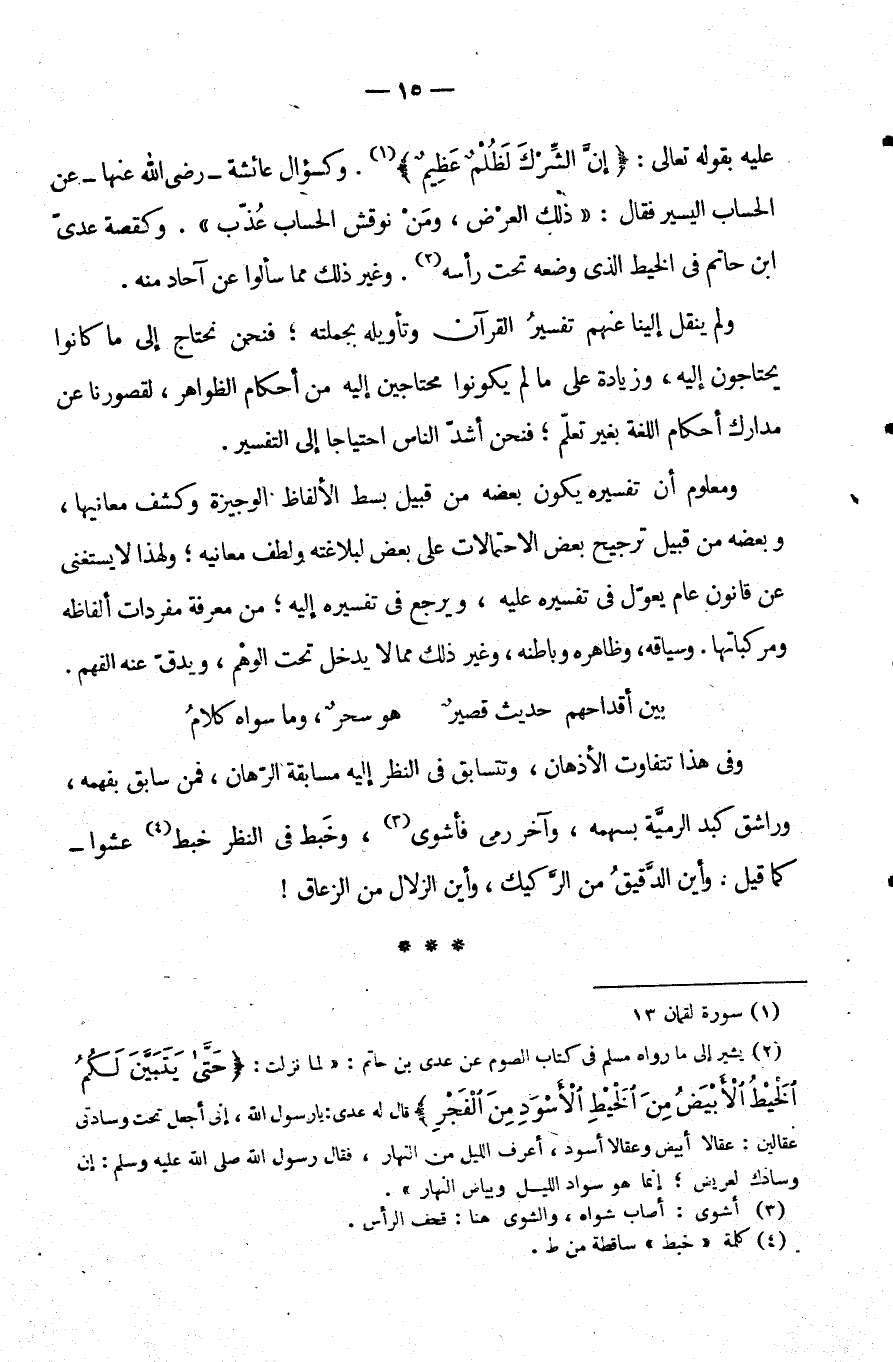 — ١٥ —
عليه بقوله تعالى : ﴿ إنَّ الشِّرْكَ لَظُلْمٌ عَظِيمٌ ﴾(١) . وكسؤال عائشة – رضى الله عنها – عن
الحساب اليسير فقال : « ذلك العرْض ، ومَنْ نوقش الحساب عُذّب » . وكقصة عدىّ
ابن حاتم فى الخيط الذى وضعه تحت رأسه(٢) . وغير ذلك مما سألوا عن آحاد منه .
ولم ينقل إلينا عنهم تفسيرُ القرآن وتأويله بجملته ؛ فنحن نحتاج إلى ما كانوا
يحتاجون إليه ، وزيادة على ما لم يكونوا محتاجين إليه من أحكام الظواهر ، لقصورنا عن
مدارك أحكام اللغة بغير تعلّم ؛ فنحن أشدّ الناس احتياجا إلى التفسير .
ومعلوم أن تفسيره يكون بعضه من قبيل بسط الألفاظ الوجيزة وكشف معانيها ،
وبعضه من قبيل ترجيح بعض الاحتمالات على بعض لبلاغته ولطف معانيه ؛ ولهذا لا يستغنى
عن قانون عام يعوّل فى تفسيره عليه ، ويرجع فى تفسيره إليه ؛ من معرفة مفردات ألفاظه
ومركباتها . وسياقه ، وظاهره وباطنه ، وغير ذلك مما لا يدخل تحت الوهْم ، ويدقّ عنه الفهم .
بين أقداحهم حديث قصيرٌ هو سحرٌ ، وما سواه كلامُ
وفى هذا تتفاوت الأذهان ، وتتسابق فى النظر إليه مسابقة الرّهان ، فمن سابق بفهمه ،
وراشق كبد الرميَّة بسهمه ، وآخر رمى فأشوى(٣) ، وخَبط فى النظر خبط(٤) عشوا –
كما قيل : وأين الدَّقيقُ من الرَّكيك ، وأين الزلال من الزعاق !
* * *
(١) سورة لقمان ١٣
(٢) يشير إلى ما رواه مسلم فى كتاب الصوم عن عدى بن حاتم : « لما نزلت : ﴿ حَتَّىٰ يَتَبَيَّنَ لَكُمُ
ٱلْخَيْطُ ٱلْأَبْيَضُ مِنَ ٱلْخَيْطِ ٱلْأَسْوَدِ مِنَ ٱلْفَجْرِ ﴾ قال له عدى : يارسول الله ، إنى أجعل تحت وسادتى
عقالين : عقالا أبيض وعقالا أسود ، أعرف الليل من النهار ، فقال رسول الله صلى الله عليه وسلم : إن
وسادك لعريض ؛ إنما هو سواد الليل وبياض النهار » .
(٣) أشوى : أصاب شواه ، والشوى هنا : قحف الرأس .
(٤) كلمة « خبط » ساقطة من ط .